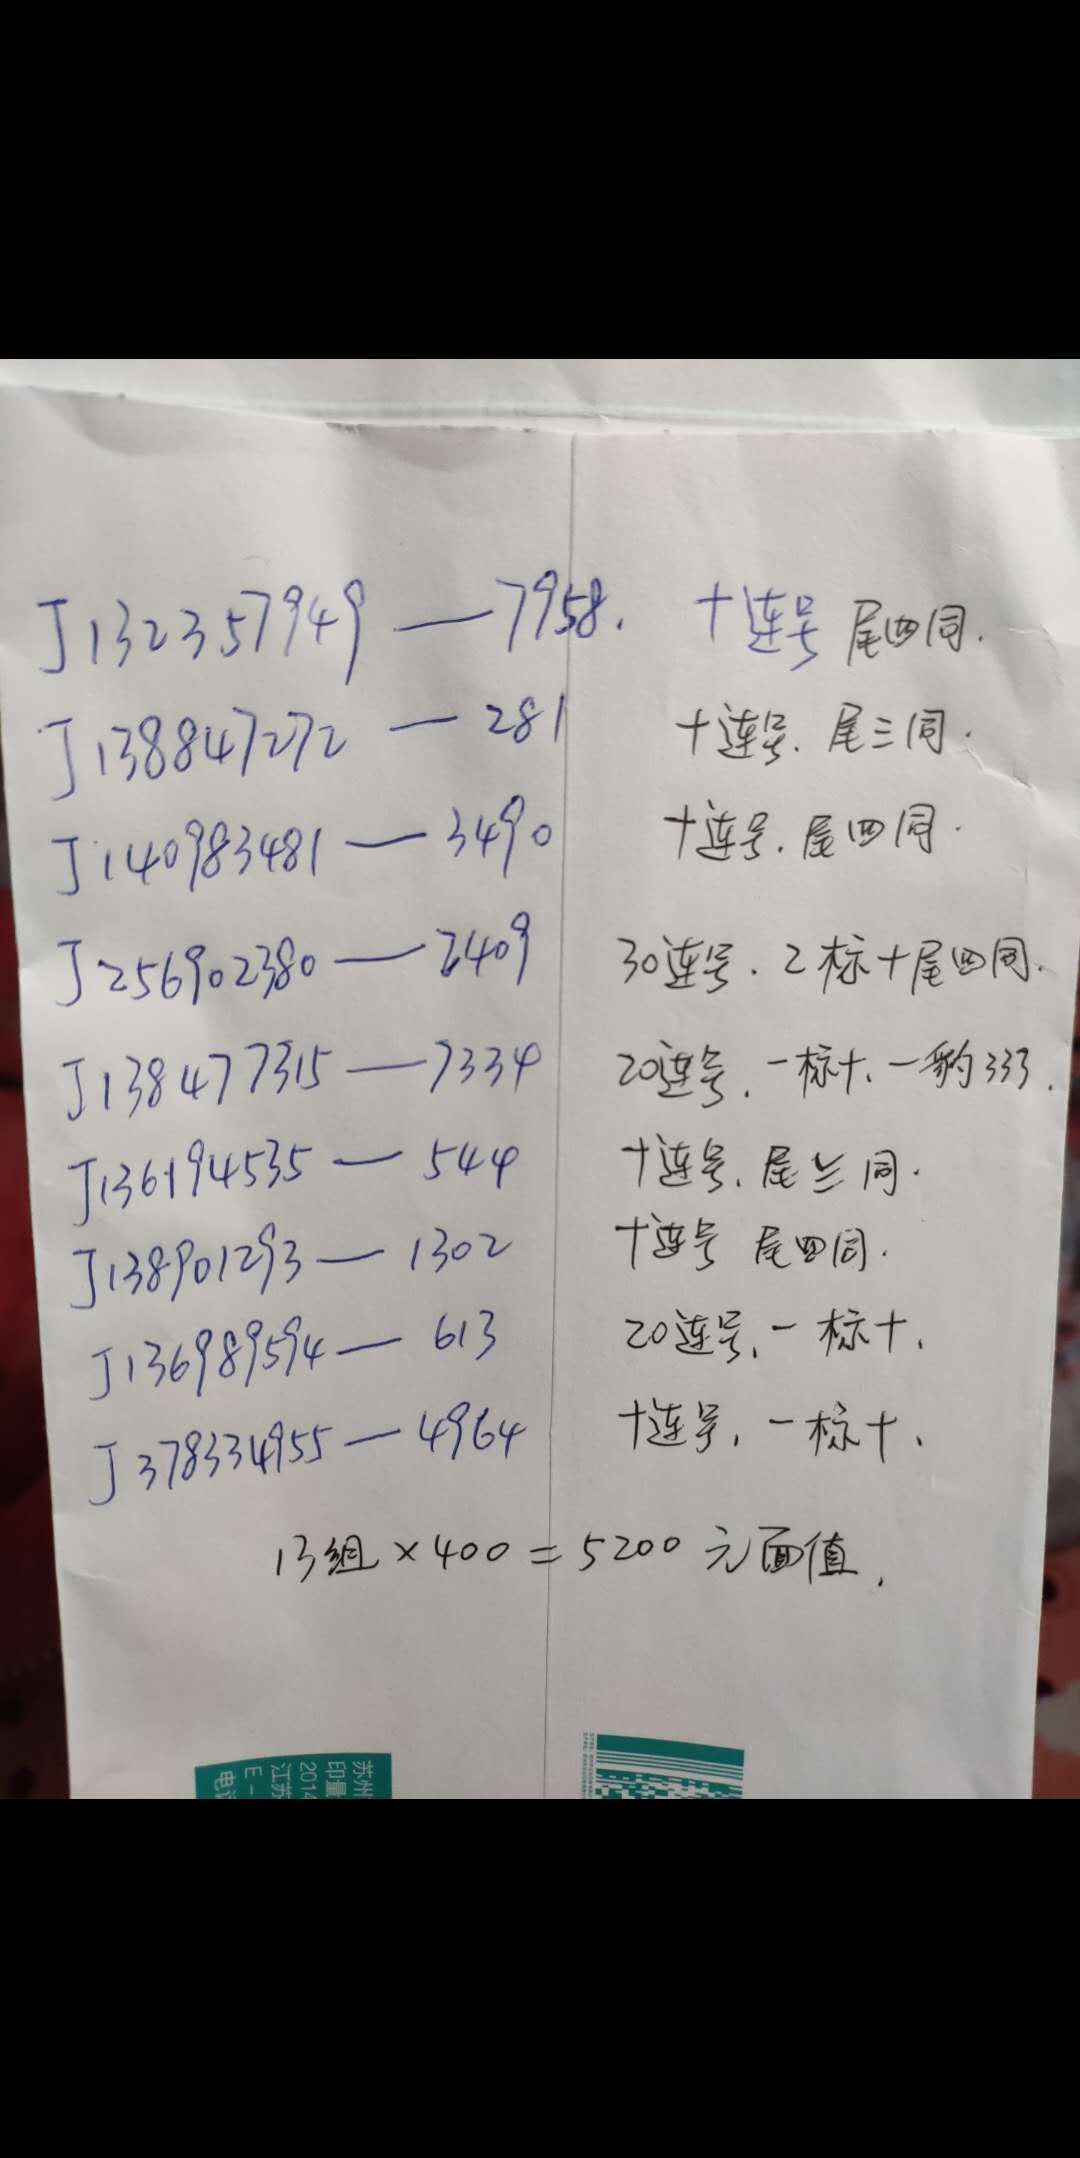 J132357949 — 7958. 十连号 尾四同.
J138847272 — 281 十连号. 尾三同.
J140983481 — 3490 十连号. 尾四同.
J256902380 — 2409 30连号. 2标十尾四同.
J138477315 — 7334 20连号. 一标十、一豹333.
J136194535 — 544 十连号. 尾三同.
J138901293 — 1302 十连号 尾四同.
J136989594 — 613 20连号. 一标十.
J378334955 — 4964 十连号. 一标十.
13组×400=5200元面值.
苏州
印量
2014
江苏
E-
电话